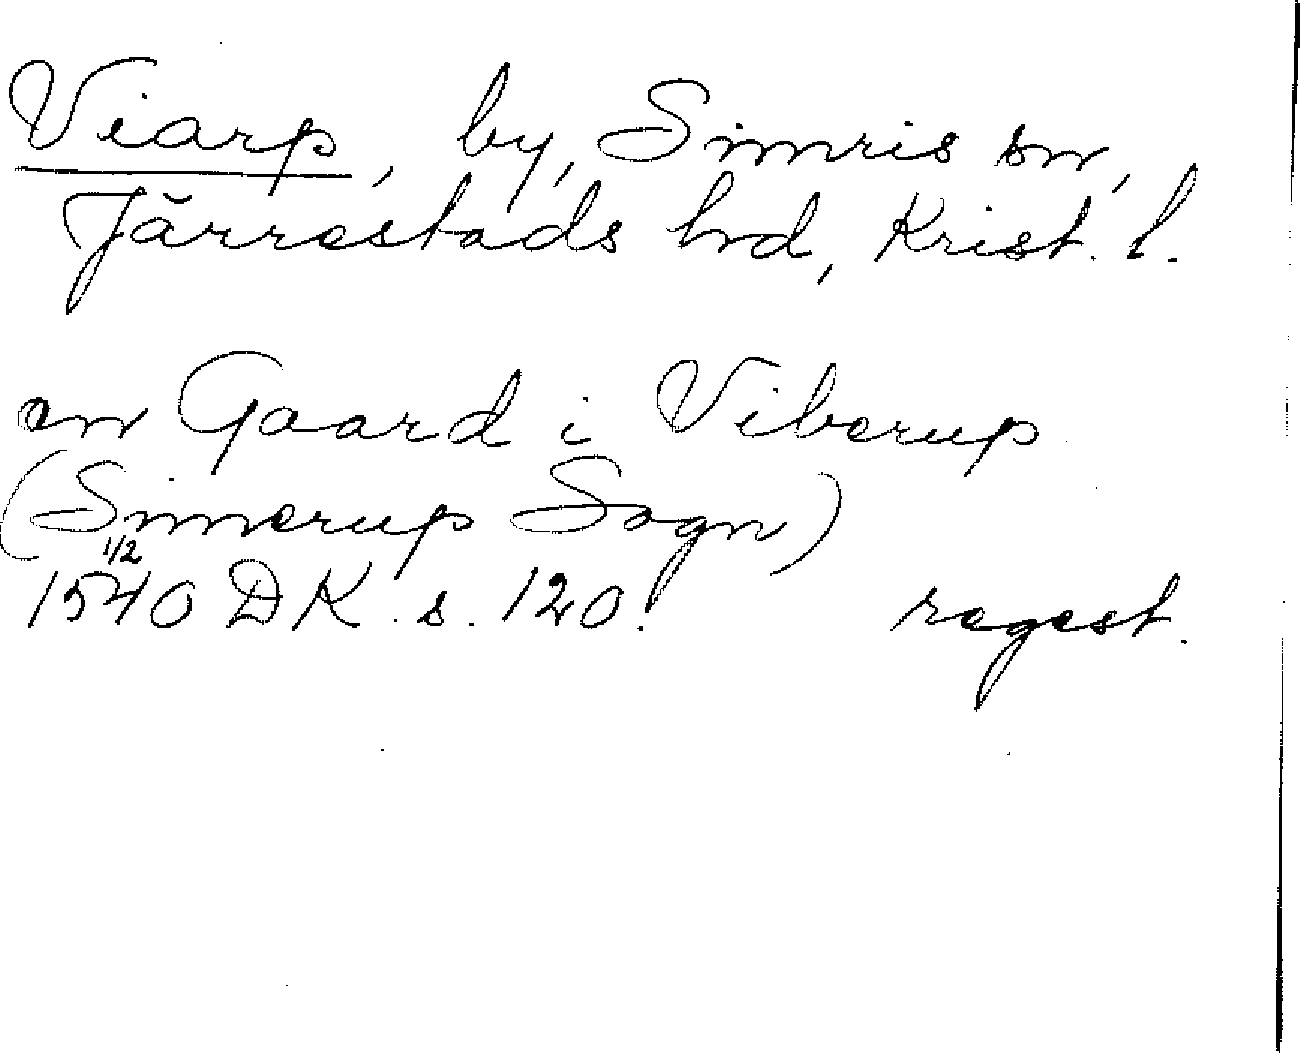 Viarp, by, Simris sn,
Järrestads hd, Krist. l.
en Gaard i Viberup
(Simmerup Sogn)
1/2
1540 DK. s. 120.
regest.